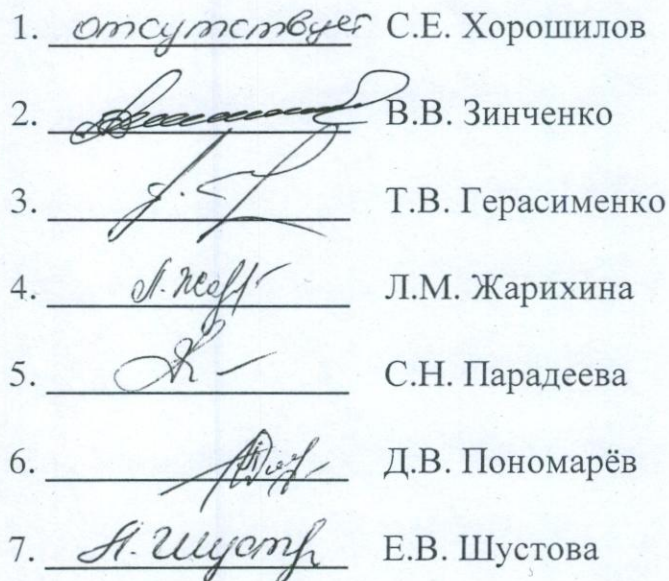 1. отсутствует С.Е. Хорошилов
2. В.В. Зинченко
3. Т.В. Герасименко
4. Л.М. Жарихина
5. С.Н. Парадеева
6. Д.В. Пономарёв
7. Е.В. Шустова